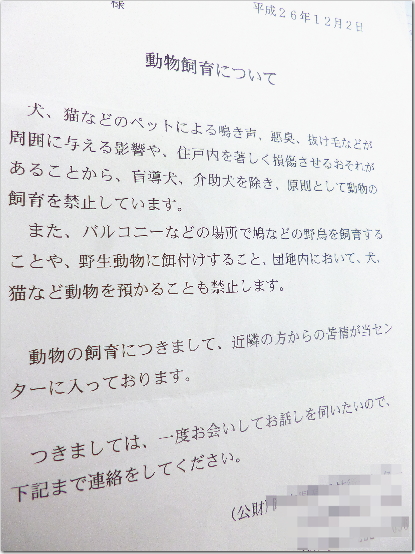 様
平成２６年１２月２日
動物飼育について
犬、猫などのペットによる鳴き声、悪臭、抜け毛などが
周囲に与える影響や、住戸内を著しく損傷させるおそれが
あることから、盲導犬、介助犬を除き、原則として動物の
飼育を禁止しています。
また、バルコニーなどの場所で鳩などの野鳥を飼育する
ことや、野生動物に餌付けすること、団地内において、犬、
猫など動物を預かることも禁止します。
動物の飼育につきまして、近隣の方からの苦情が当セン
ターに入っております。
つきましては、一度お会いしてお話しを伺いたいので、
下記まで連絡をしてください。
（公財）